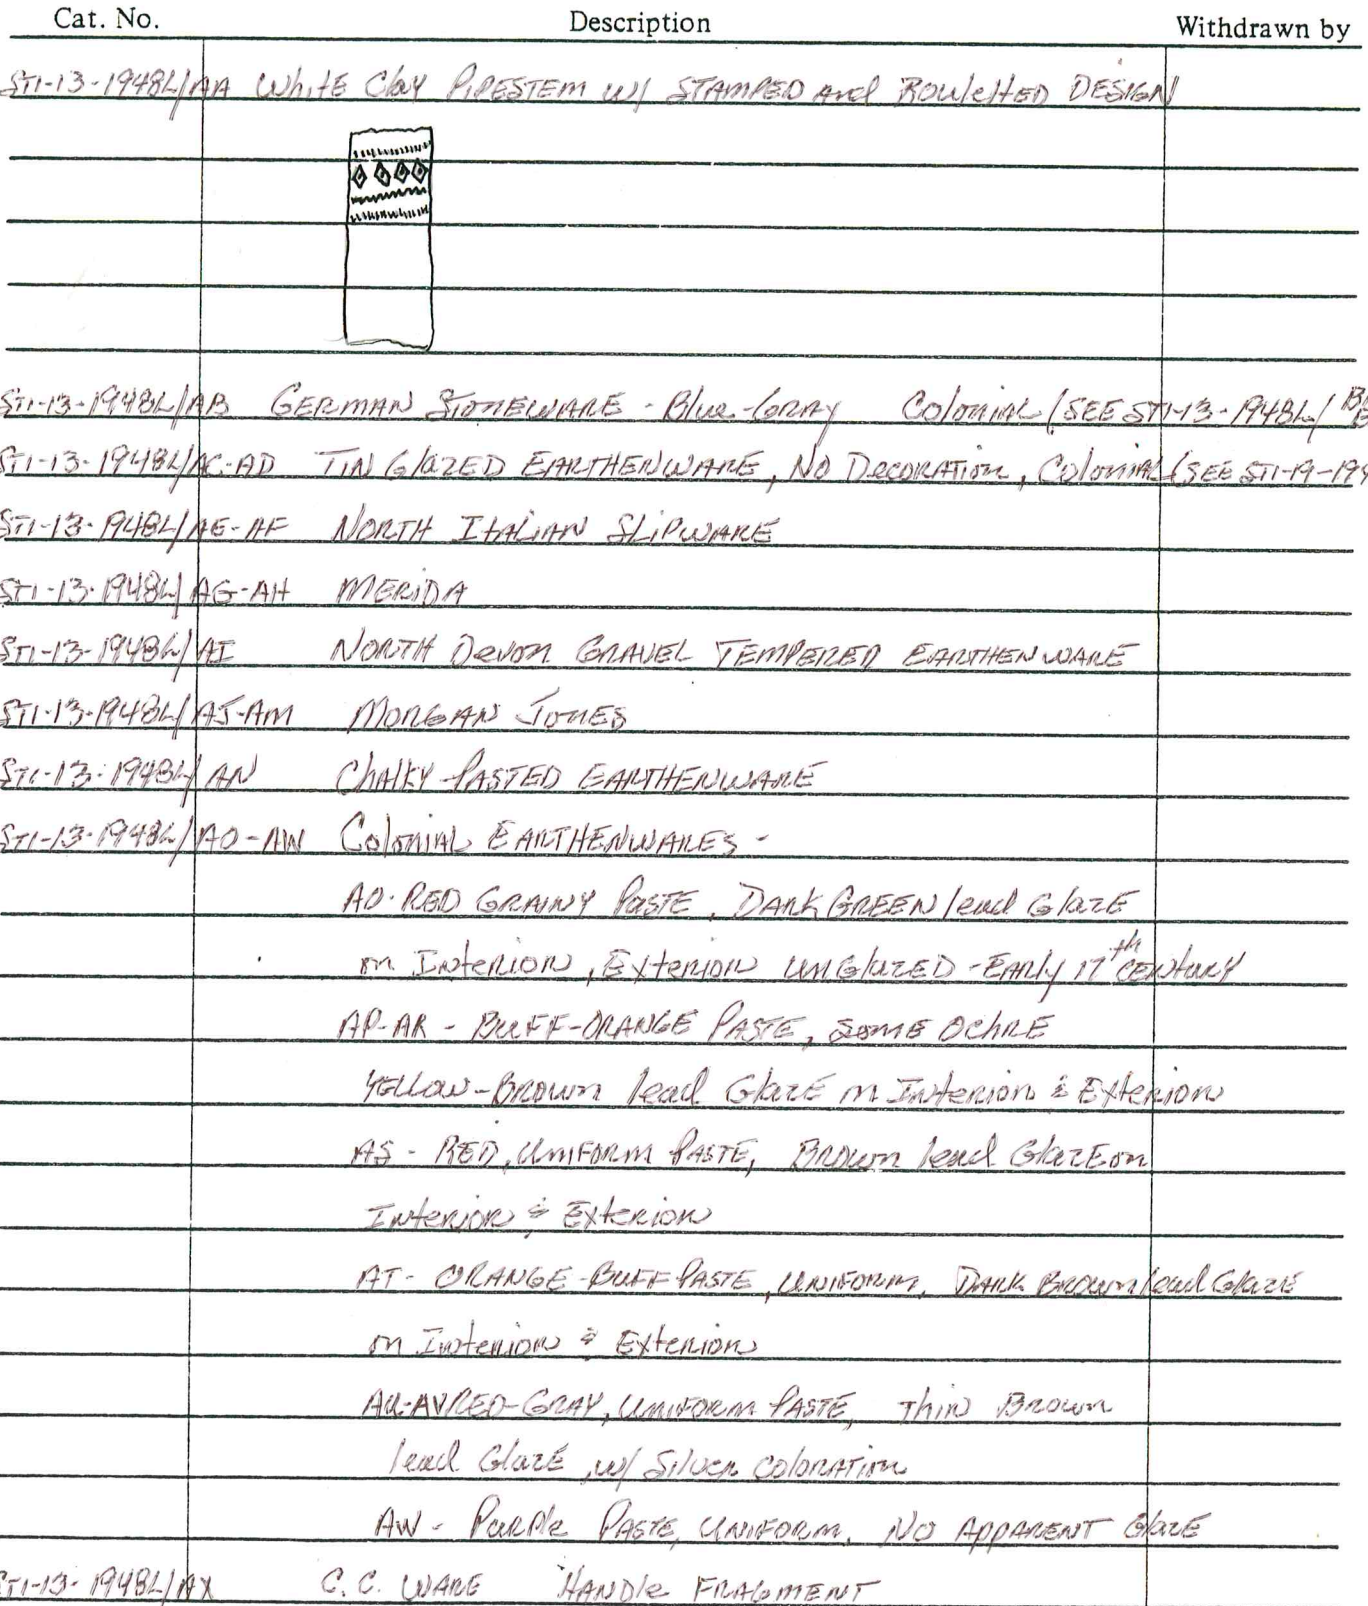 Cat. No. Description Withdrawn by
ST1-13-1948L/AA White Clay PIPESTEM w/ STAMPED and ROUletTED DESIGN
ST1-13-1948L/AB GERMAN STONEWARE - Blue-Gray Colonial (SEE ST1-13-1948L/
ST1-13-1948L/AC-AD TIN GlAZED EARTHENWARE, No Decoration, Colonial (SEE ST1-19-194
ST1-13-1948L/AE-AF NORTH ItALIAN SLiPWARE
ST1-13-1948L/AG-AH MERIDA
ST1-13-1948L/AI NORTH Devon GRAVEL TEMPERED EARTHENWARE
ST1-13-1948L/AJ-AM MORGAN JONES
ST1-13-1948L/AN ChAlKY-PASTED EARTHENWARE
ST1-13-1948L/AO-AW Colonial EARTHENWARES -
AO-RED GRAINY PASTE, DARK GREEN lead Glaze
on Interior, Exterior unGlazed - Early 17th CENtury
AP-AR - BuFF-ORANGE PASTE, some OchRE
YELLOW-BROWN lead GlazE on Interior & Exterior
AS - RED, UNIFORM PASTE, BROWN lead GlazE on
Interior & Exterior
AT - ORANGE-BUFF PASTE, UNIFORM, DARK BROWN lead Glaze
on Interior & Exterior
AU-AV RED-GRAY, UNIFORM PASTE, Thin Brown
lead GlazE, w/ Silver coloration
AW - Purple PASTE, UNIFORM, No APPARENT GlazE
ST1-13-1948L/AX C.C. WARE HANDle FRAGMENT